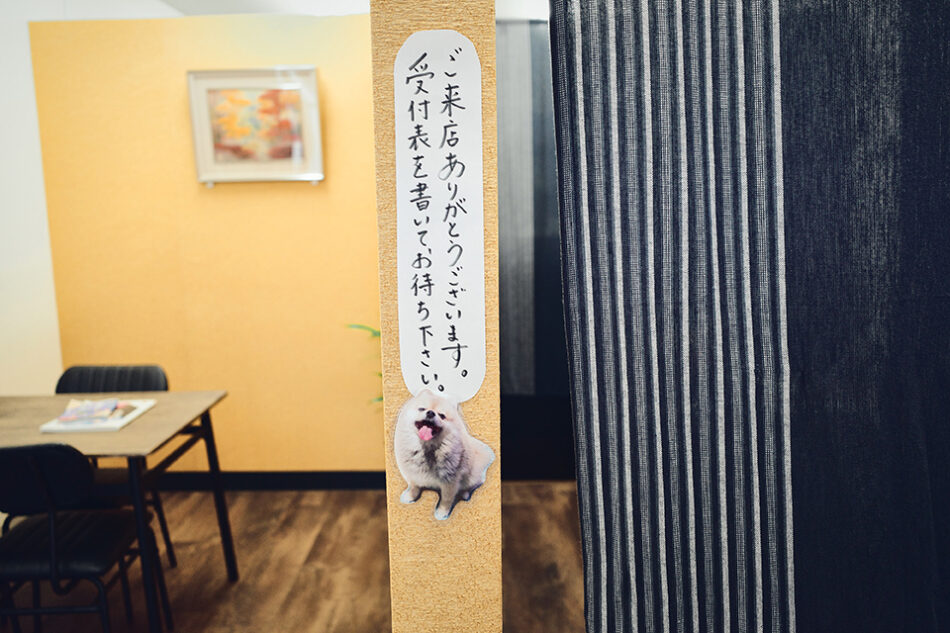 ご来店ありがとうございます。
受付表を書いて、お待ち下さい。